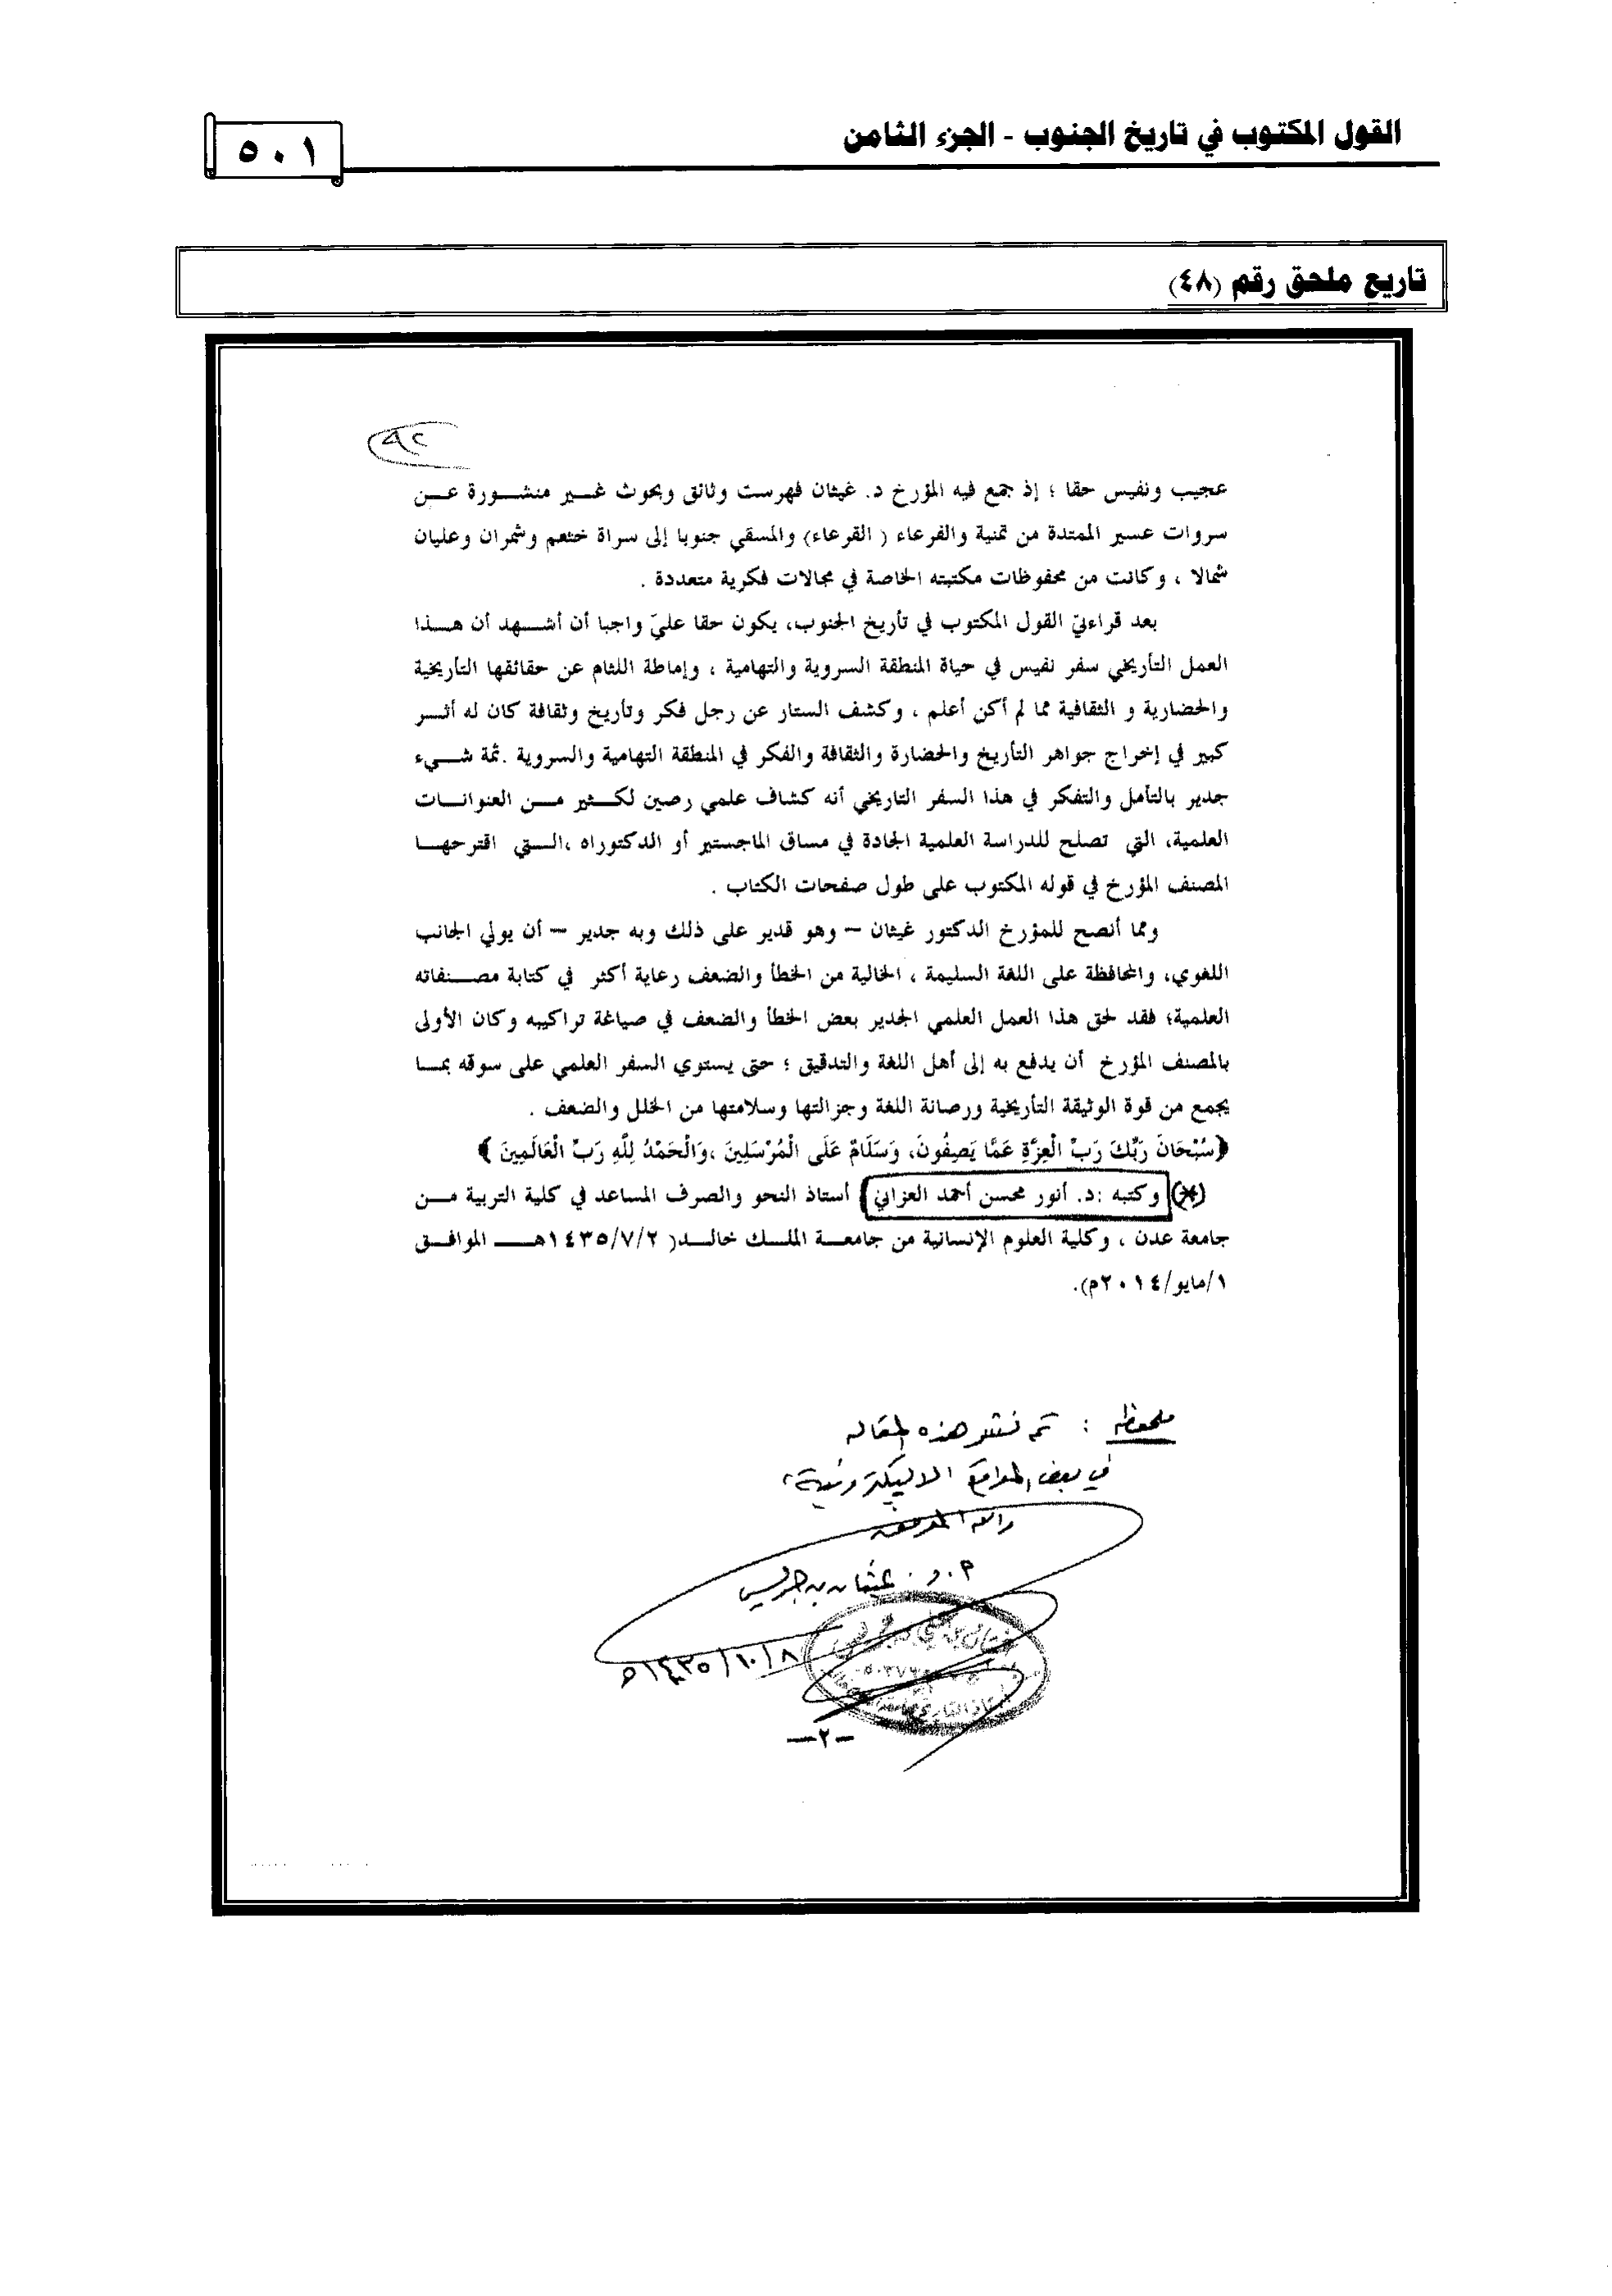 القول المكتوب في تاريخ الجنوب - الجزء الثامن
٥٠١
تاريع ملحق رقم (٤٨)
٩٢
عجيب ونفيس حقا ؛ إذ جمع فيه المؤرخ د. غيثان فهرست وثائق وبحوث غير منشورة عن
سروات عسير الممتدة من تمنية والفرعاء ( القرعاء) والمسقي جنوبا إلى سراة خثعم وشمران وعليان
شمالا ، وكانت من محفوظات مكتبته الخاصة في مجالات فكرية متعددة .
بعد قراءتيّ القول المكتوب في تأريخ الجنوب، يكون حقا عليّ واجبا أن أشهد أن هذا
العمل التأريخي سفر نفيس في حياة المنطقة السروية والتهامية ، وإماطة اللثام عن حقائقها التأريخية
والحضارية و الثقافية مما لم أكن أعلم ، وكشف الستار عن رجل فكر وتأريخ وثقافة كان له أثر
كبير في إخراج جواهر التأريخ والحضارة والثقافة والفكر في المنطقة التهامية والسروية .ثمة شيء
جدير بالتأمل والتفكر في هذا السفر التاريخي أنه كشاف علمي رصين لكثير من العنوانات
العلمية، التي تصلح للدراسة العلمية الجادة في مساق الماجستير أو الدكتوراه ،التي اقترحها
المصنف المؤرخ في قوله المكتوب على طول صفحات الكتاب .
ومما أنصح للمؤرخ الدكتور غيثان – وهو قدير على ذلك وبه جدير – أن يولي الجانب
اللغوي، والمحافظة على اللغة السليمة ، الخالية من الخطأ والضعف رعاية أكثر في كتابة مصنفاته
العلمية؛ فقد لحق هذا العمل العلمي الجدير بعض الخطأ والضعف في صياغة تراكيبه وكان الأولى
بالمصنف المؤرخ أن يدفع به إلى أهل اللغة والتدقيق ؛ حتى يستوي السفر العلمي على سوقه بما
يجمع من قوة الوثيقة التأريخية ورصانة اللغة وجزالتها وسلامتها من الخلل والضعف .
﴿سُبْحَانَ رَبِّكَ رَبِّ الْعِزَّةِ عَمَّا يَصِفُونَ، وَسَلَامٌ عَلَى الْمُرْسَلِينَ ،وَالْحَمْدُ لِلَّهِ رَبِّ الْعَالَمِينَ ﴾
(*) وكتبه :د. أنور محسن أحمد العزاني) أستاذ النحو والصرف المساعد في كلية التربية من
جامعة عدن ، وكلية العلوم الإنسانية من جامعة الملك خالد( ١٤٣٥/٧/٢هـ الموافق
١/مايو/٢٠١٤م).
ملحوظه : تم نشر هذه المقاله
في بعض المواقع الاليكترونية،
والله الموفق
أ.د. غيثان بن جريس
١٤٣٥/١٠/٨هـ
–٢–